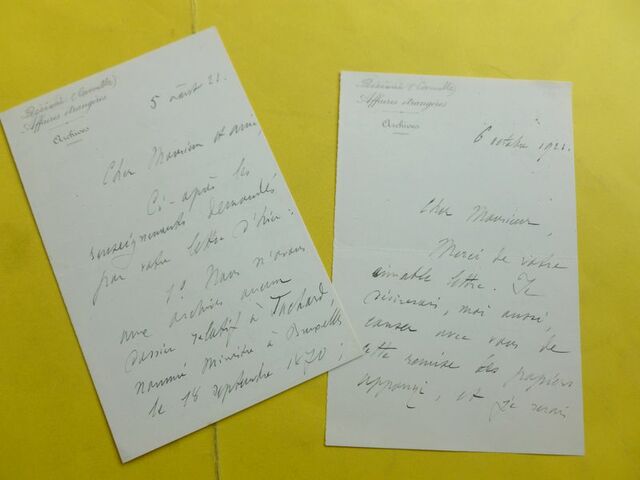 Affaires étrangères
Archives
5 août 21.
Cher Monsieur et ami,
Ci-après les
renseignements demandés
par votre lettre d'hier :
1° Nous n'avons
aux archives aucun
dossier relatif à Tachard,
nommé Ministre à Bruxelles
le 18 septembre 1870 ;
Affaires étrangères
Archives
6 octobre 1921.
Cher Monsieur,
Merci de votre
aimable lettre. Je
désirerais, moi aussi,
causer avec vous de
cette remise des papiers
, et je serais